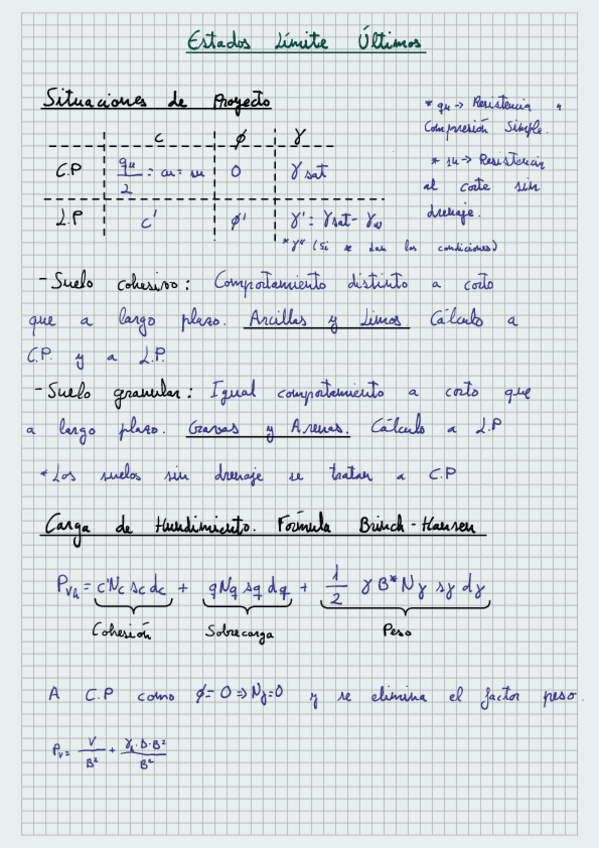 Estados Límite Últimos
Situaciones de Proyecto
* qu → Resistencia a
Compresión Simple.
* su → Resistencia
al corte sin
drenaje.
c ϕ γ
C.P qu/2 = cu = su 0 γsat
L.P c' ϕ' γ' = γsat - γw
* γ'' (Si se dan las condiciones)
- Suelo cohesivo: Comportamiento distinto a corto
que a largo plazo. Arcillas y Limos Cálculo a
C.P. y a L.P.
- Suelo granular: Igual comportamiento a corto que
a largo plazo. Gravas y Arenas. Cálculo a L.P
* Los suelos sin drenaje se tratan a C.P
Carga de Hundimiento. Fórmula Brinch-Hansen
Pvh = c'Nc sc dc + qNq sq dq + 1/2 γ B* Nγ sγ dγ
Cohesión Sobrecarga Peso
A C.P como ϕ = 0 ⇒ Nγ=0 y se elimina el factor peso.
Pv = V/B² + γh·D·B²/B²